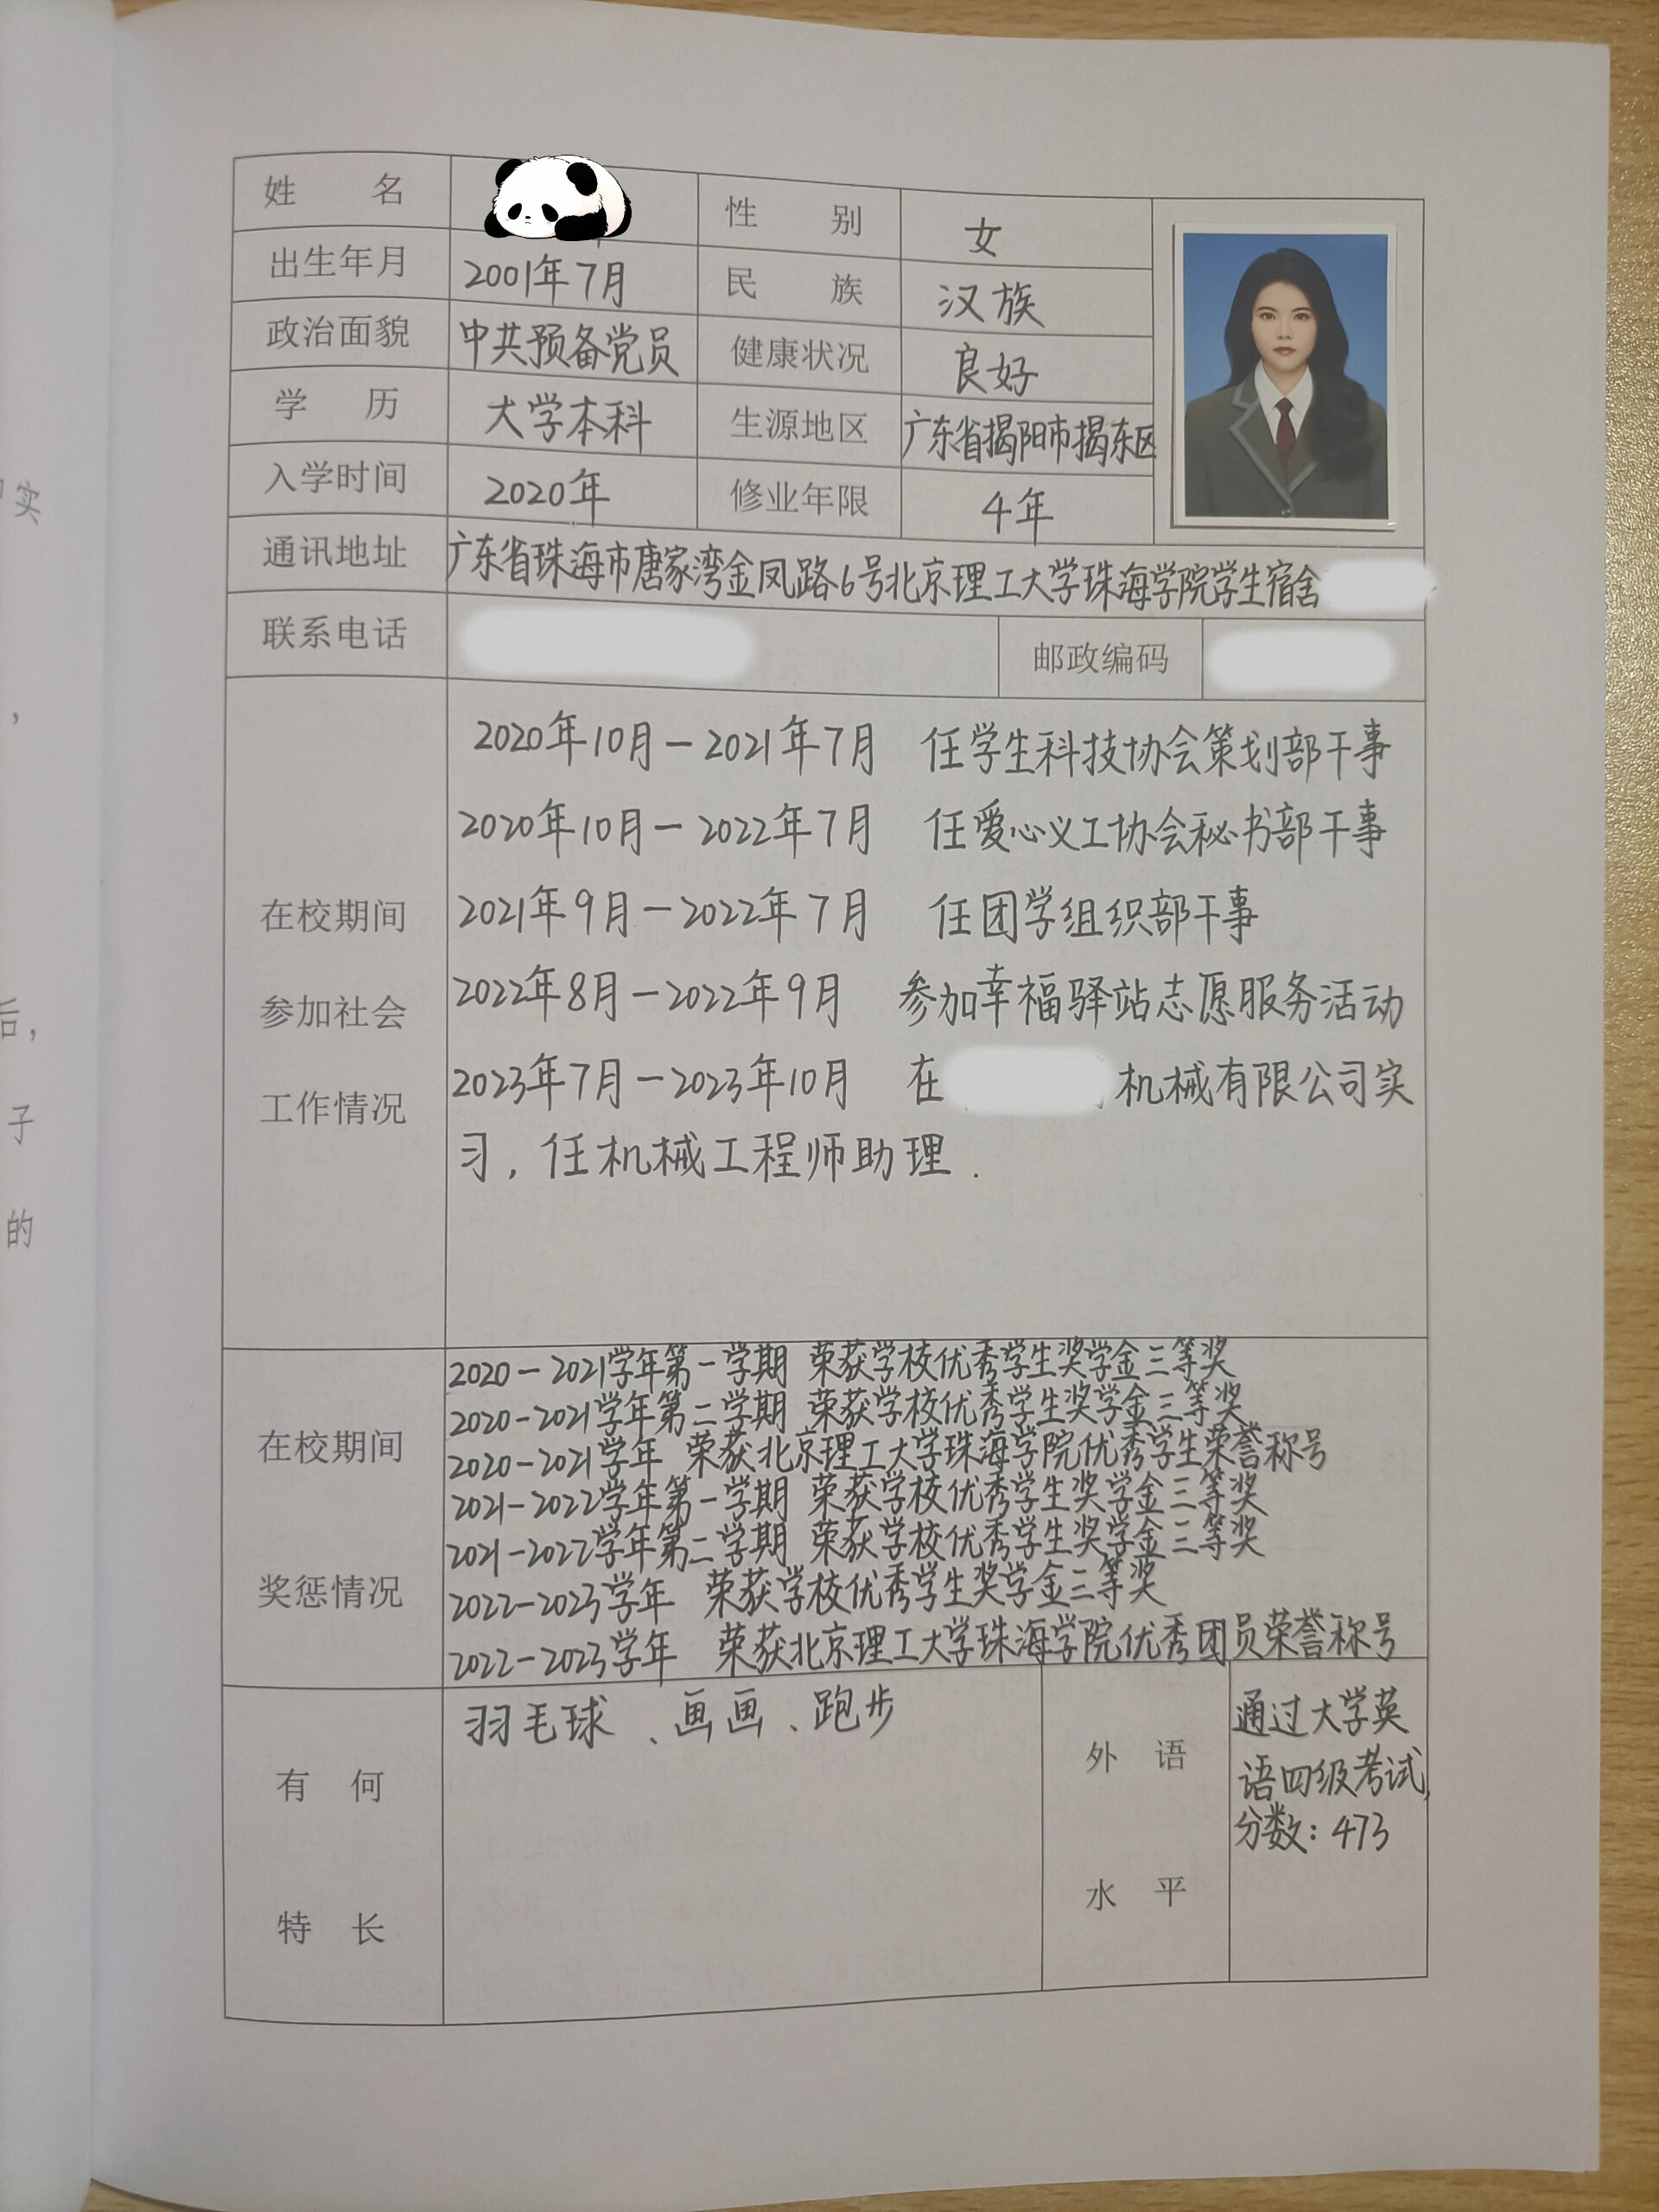 实
，
后，
子
的
姓 名
性 别 女
出生年月 2001年7月 民 族 汉族
政治面貌 中共预备党员 健康状况 良好
学 历 大学本科 生源地区 广东省揭阳市揭东区
入学时间 2020年 修业年限 4年
通讯地址 广东省珠海市唐家湾金凤路6号北京理工大学珠海学院学生宿舍
联系电话 邮政编码
在校期间
参加社会
工作情况
2020年10月-2021年7月 任学生科技协会策划部干事
2020年10月-2022年7月 任爱心义工协会秘书部干事
2021年9月-2022年7月 任团学组织部干事
2022年8月-2022年9月 参加幸福驿站志愿服务活动
2023年7月-2023年10月 在 机械有限公司实
习，任机械工程师助理.
在校期间
奖惩情况
2020-2021学年第一学期 荣获学校优秀学生奖学金三等奖
2020-2021学年第二学期 荣获学校优秀学生奖学金三等奖
2020-2021学年 荣获北京理工大学珠海学院优秀学生荣誉称号
2021-2022学年第一学期 荣获学校优秀学生奖学金三等奖
2021-2022学年第二学期 荣获学校优秀学生奖学金三等奖
2022-2023学年 荣获学校优秀学生奖学金三等奖
2022-2023学年 荣获北京理工大学珠海学院优秀团员荣誉称号
有 何
特 长
羽毛球、画画、跑步
外 语
水 平
通过大学英
语四级考试，
分数：473